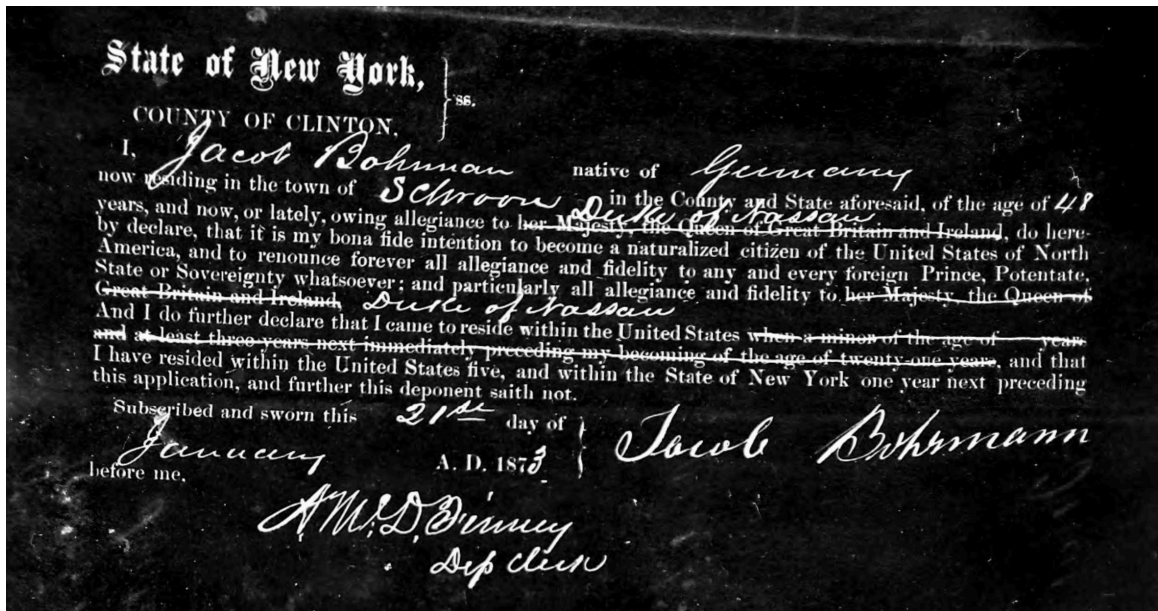 State of New York,
COUNTY OF CLINTON. } ss.
I, Jacob Bohrman native of Germany
now residing in the town of Schroon in the County and State aforesaid, of the age of 48
Duke of Nassau
years, and now, or lately, owing allegiance to her Majesty, the Queen of Great Britain and Ireland, do here-
by declare, that it is my bona fide intention to become a naturalized citizen of the United States of North
America, and to renounce forever all allegiance and fidelity to any and every foreign Prince, Potentate,
State or Sovereignty whatsoever; and particularly all allegiance and fidelity to her Majesty, the Queen of
Great Britain and Ireland, Duke of Nassau
And I do further declare that I came to reside within the United States when a minor of the age of years
and at least three years next immediately preceding my becoming of the age of twenty-one years, and that
I have resided within the United States five, and within the State of New York one year next preceding
this application, and further this deponent saith not.
Subscribed and sworn this 21st day of
January A. D. 1873
before me,
Jacob Bohrmann
A. McD. Finney
Dep Clerk